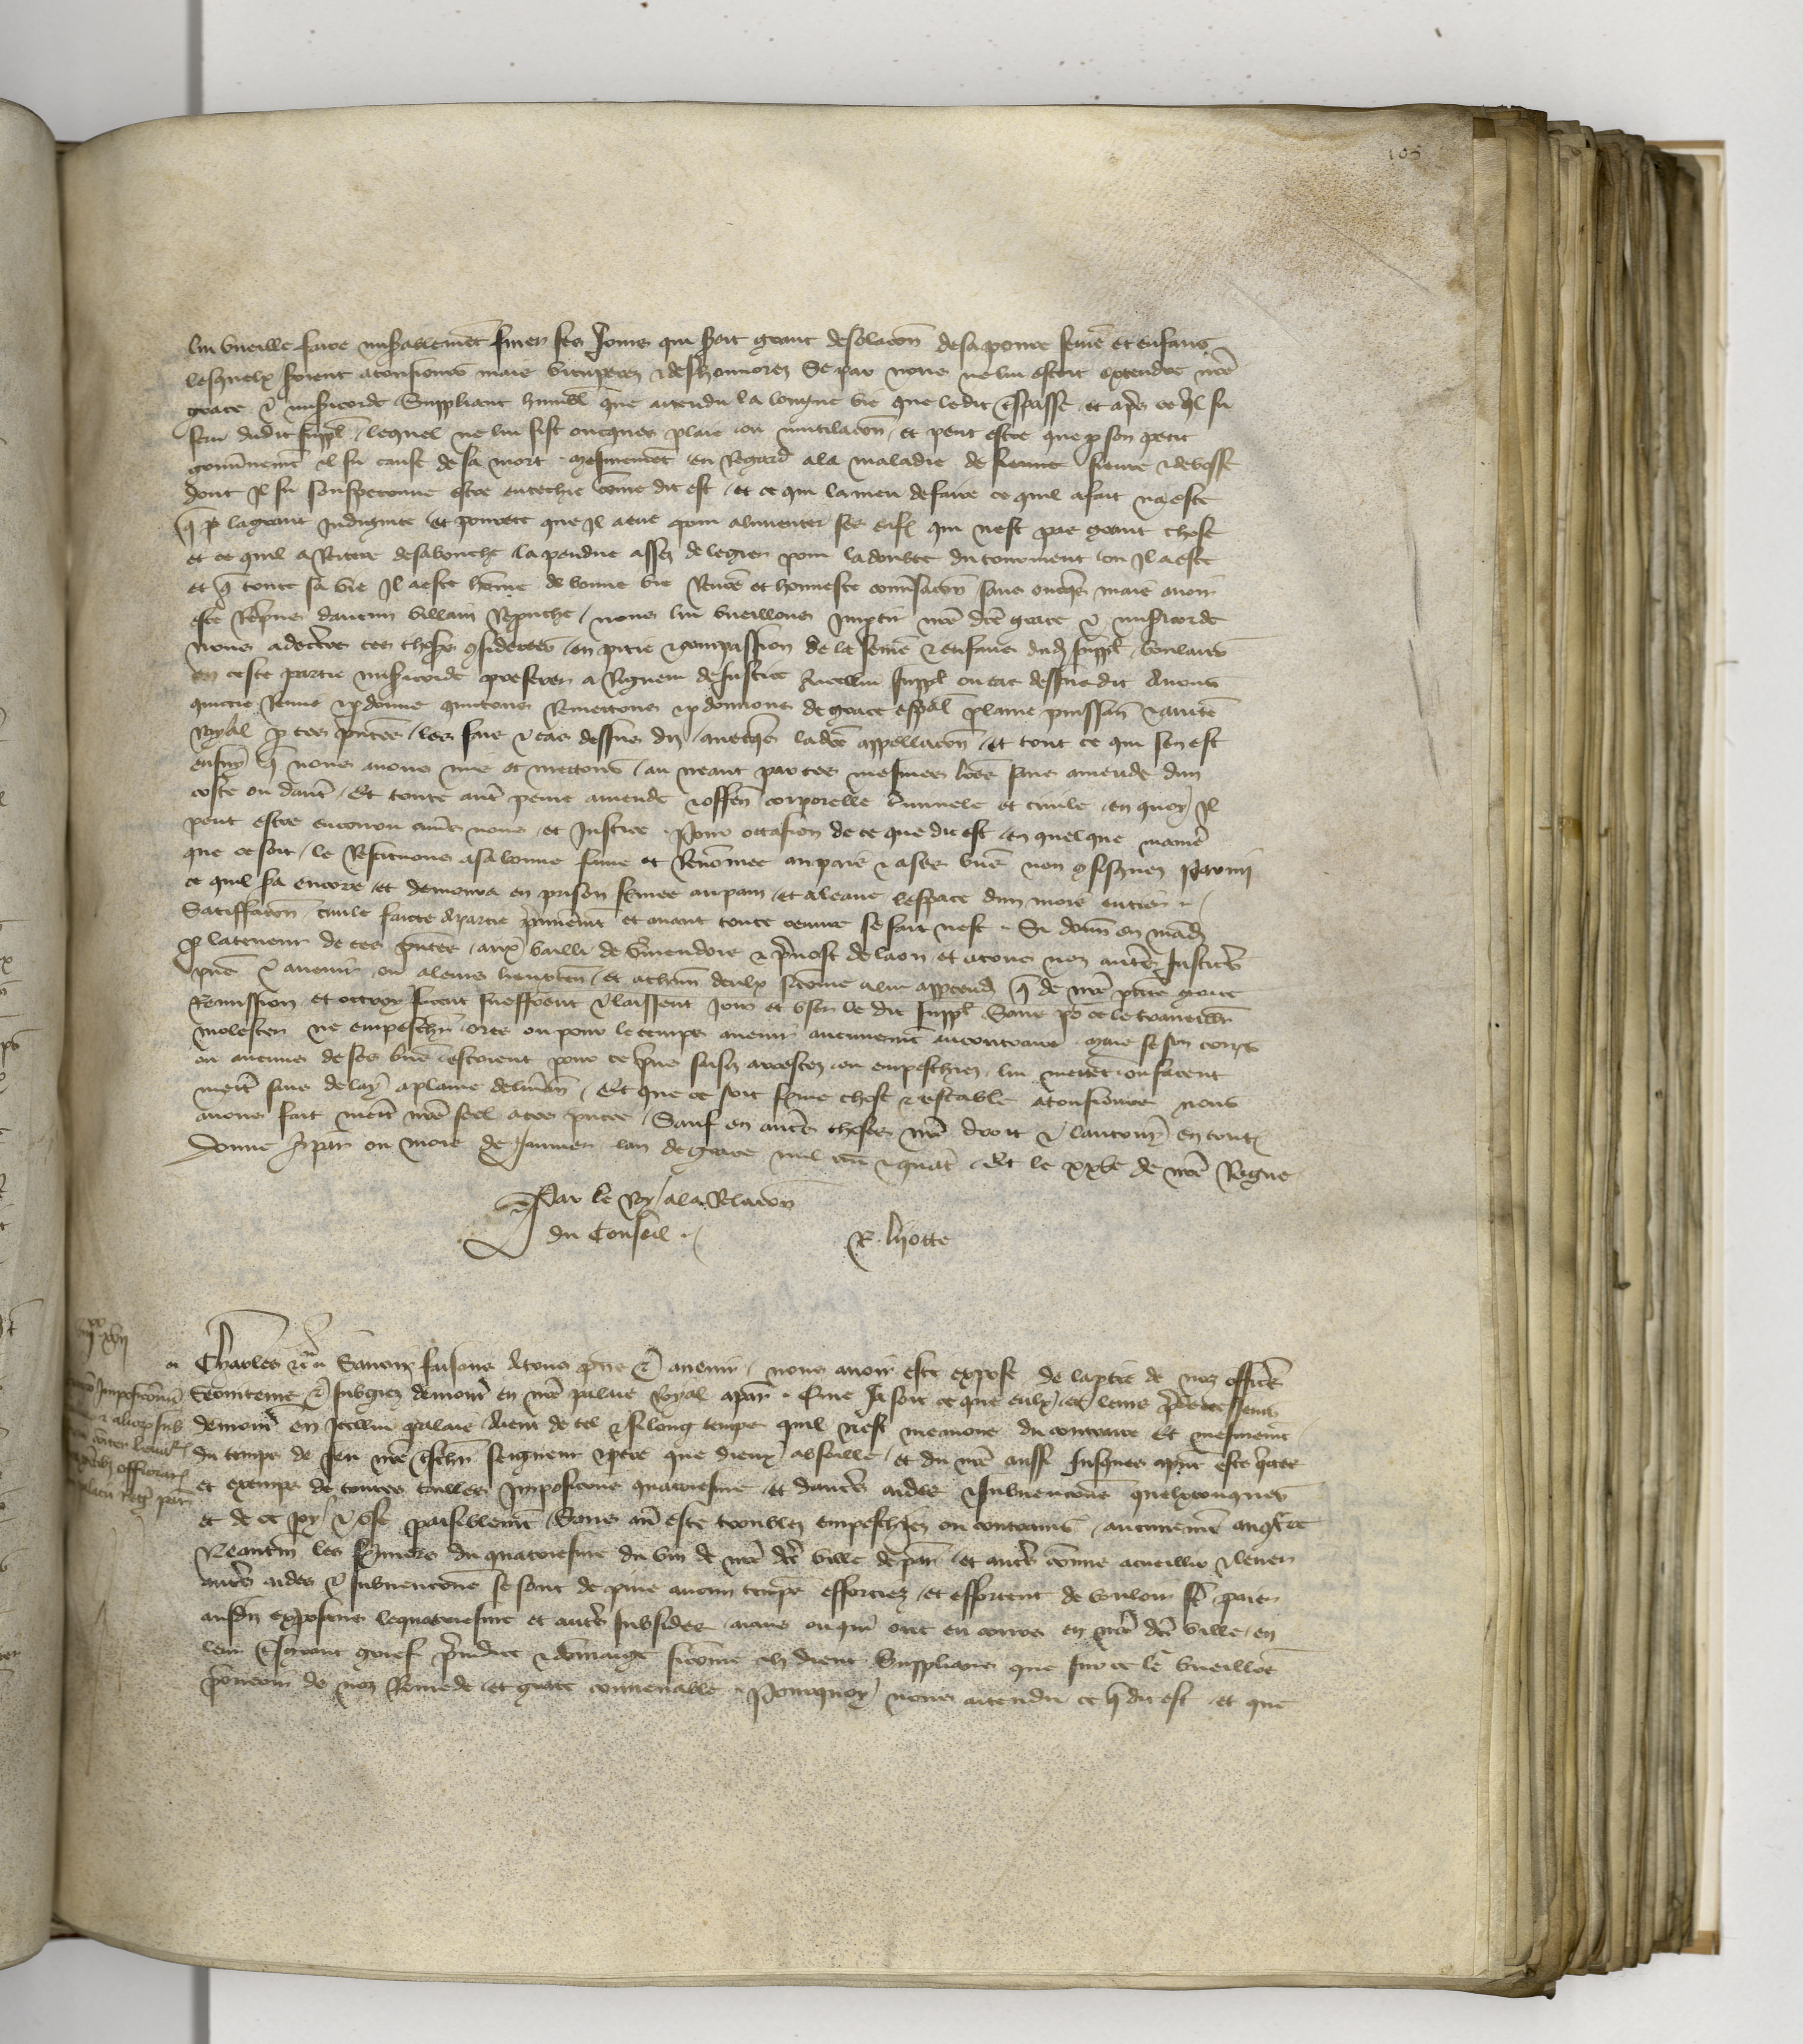 105
lui vueille faire miserablement finer ses Jours qui seroit grant desolacion de sa povre feme et enfans
lesquelx seroient a tousiours mais vituperez & deshonnorez Se par nous ne lui estoit extendre nre
grace & misericorde Suppliant humblement que attendu la longue vie que ledit et apres ce quil fu
dudit suppliant lequel ne lui fist oncques plaie ou mutilacion et peut estre que par son petit
gouvernement il fu cause de sa mort mesmement en Regard a la maladie de fievre & de bosse
dont Il fu souspeconne estre entechie comme dit est et ce qui la meu de faire ce quil a fait na este
que par la grant Indigence et povrete que Il a eue pour alimenter ses enfans qui nest pas grant chose
et ce quil a de sa bouche la perdue assez de legier pour la doubte du tourment ou Il a este
et que toute sa vie Il a este homme de bonne vie Renomee et honneste conversacion sans oncques mais avoir
este Repris daucun villain Reprouche nous lui vueillons Impartir nre dicte grace & misericorde
Nous adecertes ces choses considerees en pitie & compassion de la feme & enfans dudit suppliant voulans
en ceste partie misericorde preferer a Rigueur de Justice A icellui suppliant ou cas dessusdit Avons
quictie Remis & pardonne quictons Remettons & pardonnons de grace especial plaine puissance & auctorite
Royal par ces presentes les fais & cas dessus diz avecques ladicte appellacion et tout ce qui sen est
ensuy que nous avons mis et mettons au neant par ces mesmes lettres sans amende dun
coste ou dautre Et toute autre peine amende & offense corporelle criminele et civile en quoy Il
peut estre encouru envers nous et Justice Pour occasion de ce que dit est en quelque maniere
que ce soit le Restituons a sa bonne fame et Renommee au pais & a ses biens non confisquez parmi
ce quil sa encore et demourra en prison fermee au pain et a leaue lespace dun mois entier
Satisfacion civile faicte a partie premierement et avant toute euvre se faicte nest Si donnons en mandement
par la teneur de ces presentes aux bailli de Vermendois & prevost de laon et a tous noz autres Justiciers
presens & avenir ou a leurs lieuxtenans et a chacun deulx si comme a lui appartendra que de nre presente grace
Remission et octroy facent sueffrent & laissent Joir et user le dit suppliant Sans pour ce le travaillier
molester ne empeschier ores ou pour le temps avenir aucunement au contraire Mais se son corps
ou aucuns de ses biens estoient pour ce prins saisiz arrestez ou empeschiez lui mettent ou facent
mettre sans delay a plaine delivrance Et que ce soit ferme chose & estable a tousiours nous
avons fait mettre nre seel a ces presentes Sauf en autres choses nre droit & lautruy en toutes
Donne a paris ou mois de Janvier lan de grace mil cccc & quatre Et le xxve de nre Regne
Par le Roy a la Relacion
du Conseil
R. lyotte
Charles &c Savoir faisons A tous presens & avenir nous avoir este expose de la partie de noz officiers
& subgiez demourans en nre palais Royal a paris Que Ja soit ce que eulx et leurs predecesseurs
demourans en Icellui palais Aient de tel & si long temps quil nest memoire du contraire Et mesmement
du temps de feu nre treschier seigneur & pere que dieux absoille et du nre aussi Jusques a present este quittes
et exemps de toutes tailles Imposicions quatriesme et dautres aides & subvencions quelzconques
et de ce Joy & use paisiblement Sans avoir este troublez empeschiez ou contrains aucunement au contraire
Neantmoins les fermiers du quatriesme du vin de nre dicte ville de paris et autres commis a cueillir & lever
autres aides & subvencions se sont de puis aucun temps efforciez et efforcent de vouloir faire paier
ausdiz exposans le quatriesme et autres subsides aians ou qui ont eu cours en nre dicte ville en
leur tresgrant grief preiudice & dommaige sicomme Ilz dient Supplians que sur ce leur vueillons
pourveoir de noz Remede et grace convenable Pourquoy nous attendu ce que dit est et que